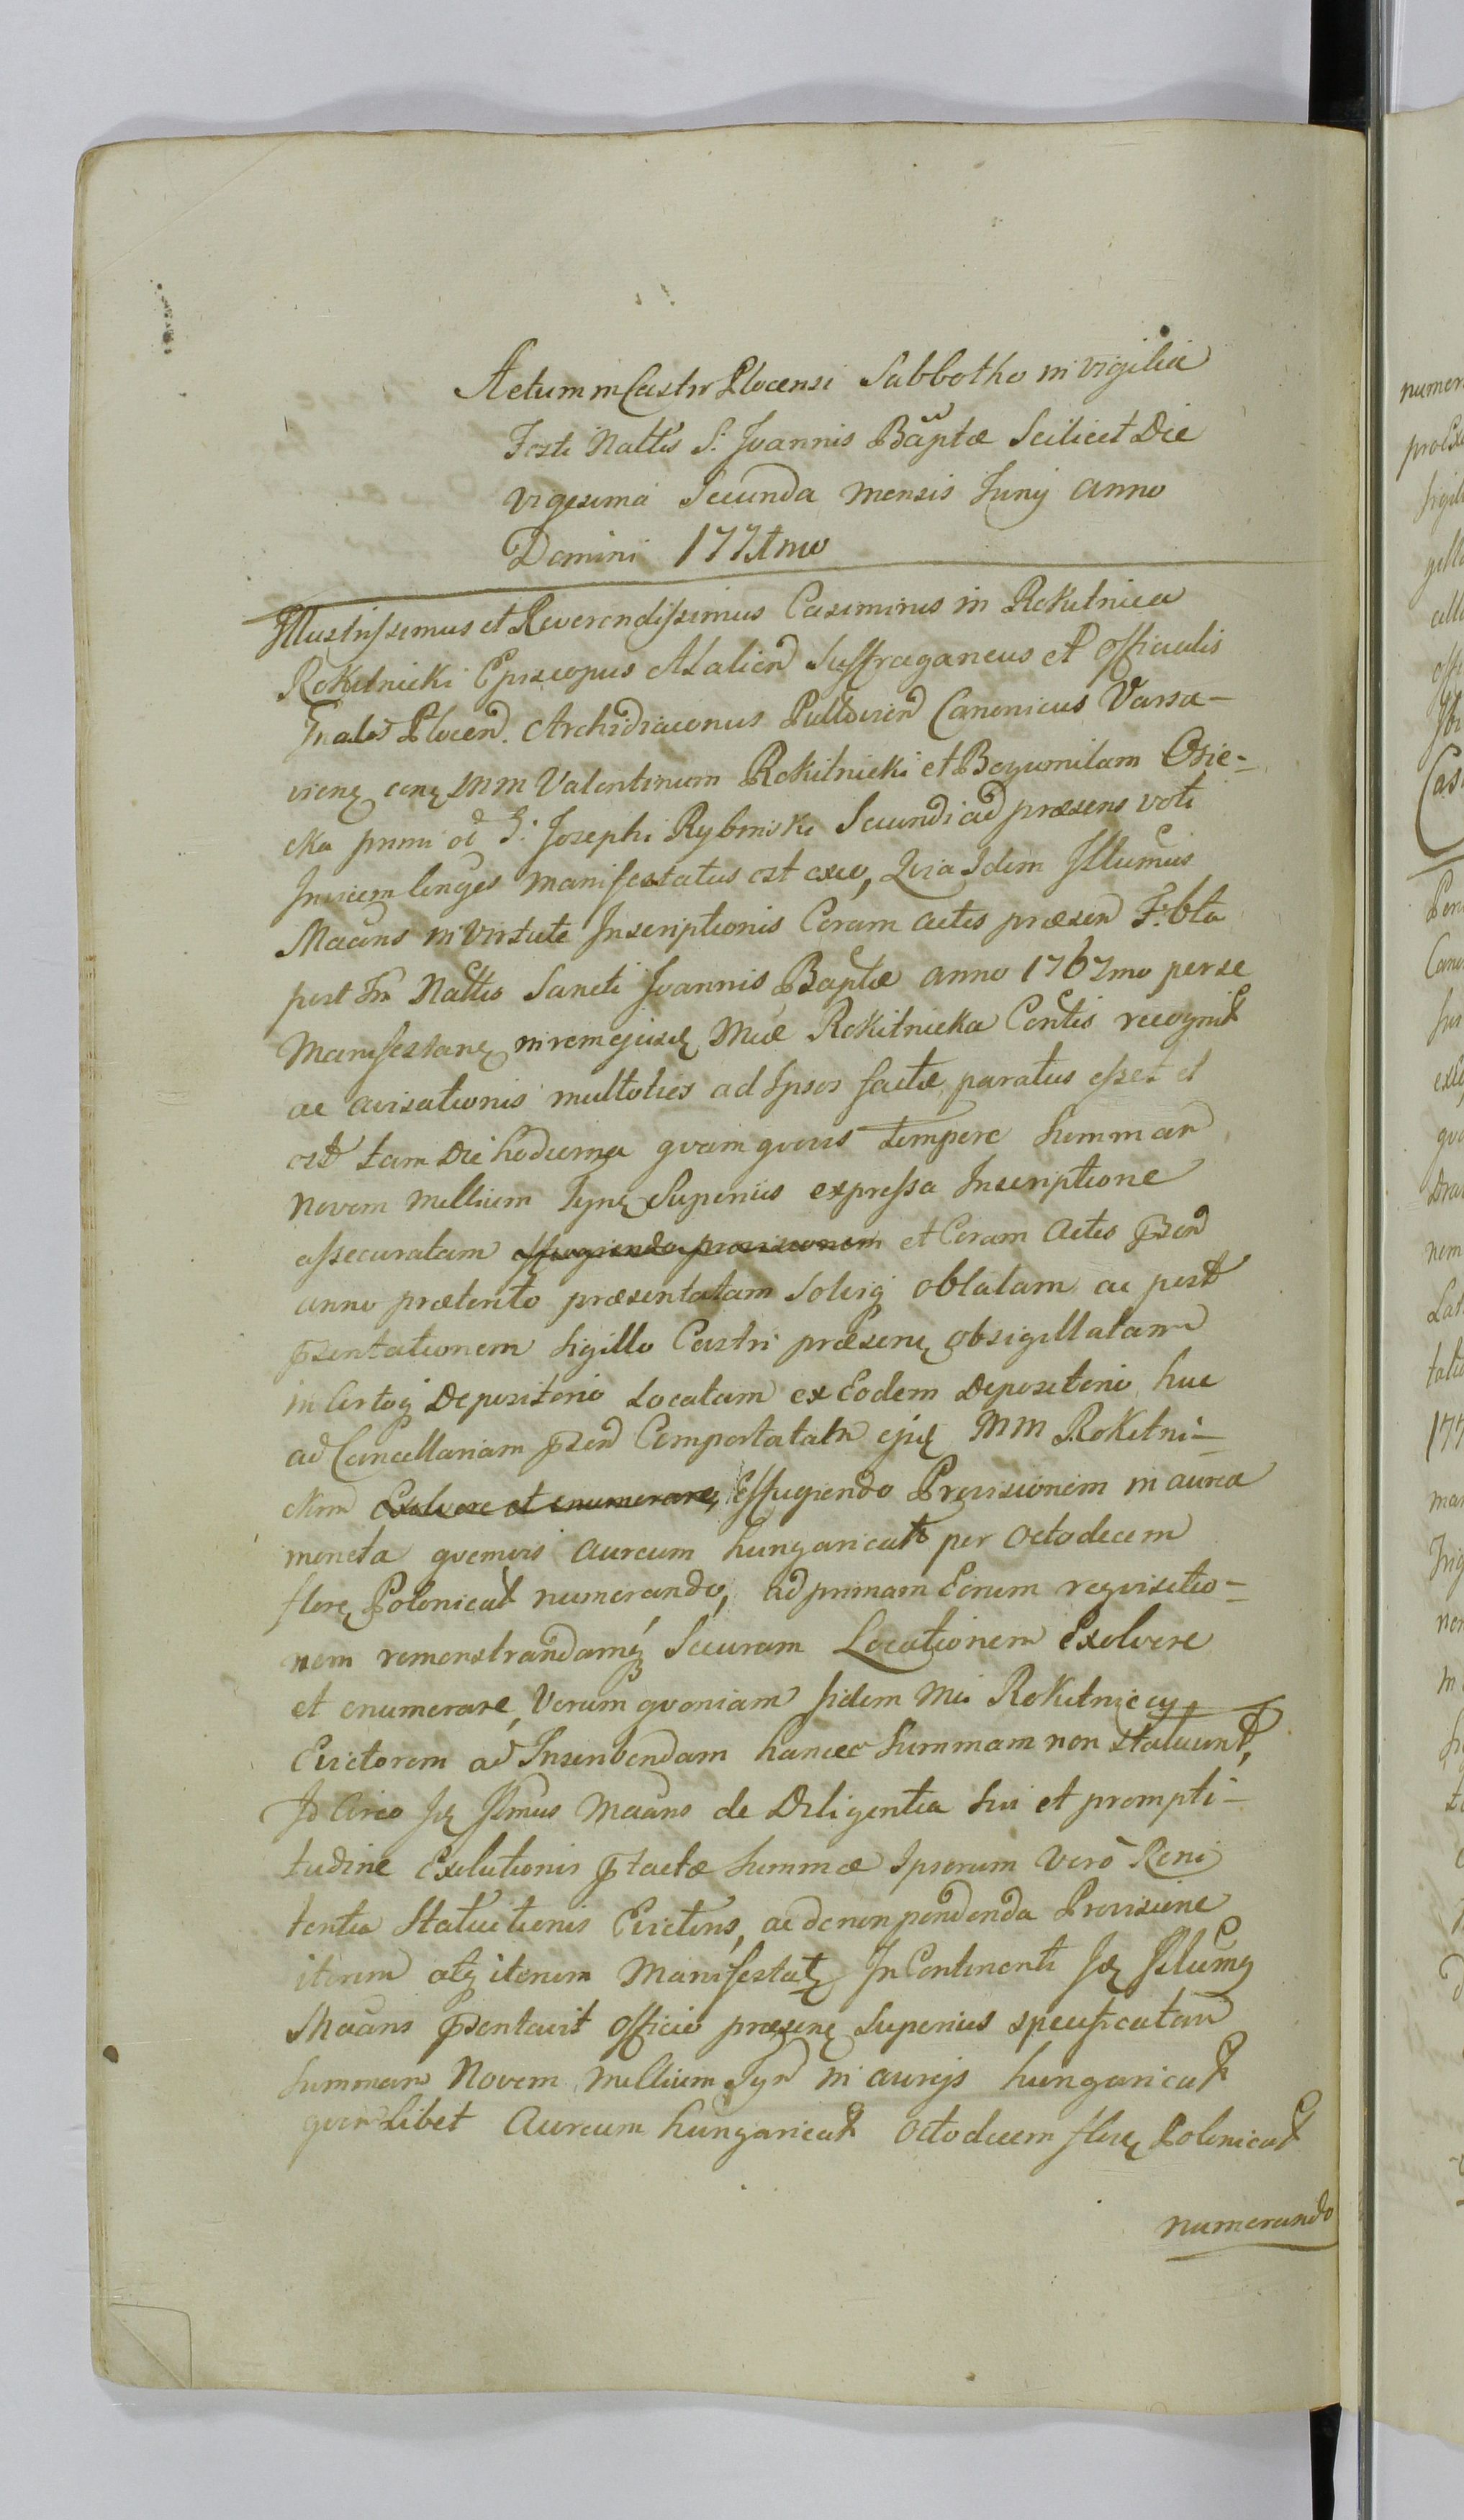 Actum in Castro Plocensi Sabbatho in vigilia
Festi Nattis S. Joannis Baptæ Scilicet Die
vigesima Secunda mensis Junij anno
Domini 1771mo
Illustrissimus et Reverendissimus Casimirus in Rokitnica
Rokitnicki Episcopus Alalien Suffraganeus et Officialis
Gnalis Plocen. Archidiaconus Pultovien Canonicus Varsa-
vien cong MM Valentinum Rokitnicki et Bogumilam Osie-
cka primi et G. Josephi Rybinski Secundi ad præsens voti
Invicem conges manifestatus est exeo, Quia Idem Illumus
Maans in virtute Inscriptionis Coram actis præsen F. bta
post Fm Nattis Sancti Joannis Baptæ anno 1767mo per se
Manifestane in rem ejusd Mcæ Rokitnicka Contis recognit
ac avisationis multoties ad Ipsos factæ, paratus esset et
est tam Die hodierna quam quovis tempore Summam
Novem millium Tynf Superius expressa Inscriptione
assecuratam effugiendo provisionem et Coram Actis Præn
anno præterito præsentatam Solviq oblatam ac post
Præsentationem Sigillo Castri præsen obsigillatam
in Certoq Depositorio Locatam ex Eodem Depositorio huc
ad Cancellariam Præn Comportatam ejusd MM Rokitni-
ckim Exolvere et enumerare, Effugiendo Provisionem in aurea
moneta quemvis aureum hungarical per octodecem
flore Polonical numerando, ad primam Eorum requisitio-
nem remonstrandamq Securam Locationem Exolvere
et enumerare, Verum quoniam Iidem Mci Rokitniccy
Evictorem ad Inscribendam hancce Summam non statuunt,
Id Circo Id Illmus Maans de Diligentia Sui et prompti-
tudine Exolutionis Ptactæ Summæ Ipsorum verò Reni
tentia Statuitionis Evictoris, ac de non pendenda Provisione
iterum atq iterum Manifestat, In Continenti Id Illumus
Maans Præsentavit officio præsen Superius specificatam
Summam Novem millium Tynf in aureis hungarical
quemlibet Aureum hungarical octodecem flore Polonical
numerando